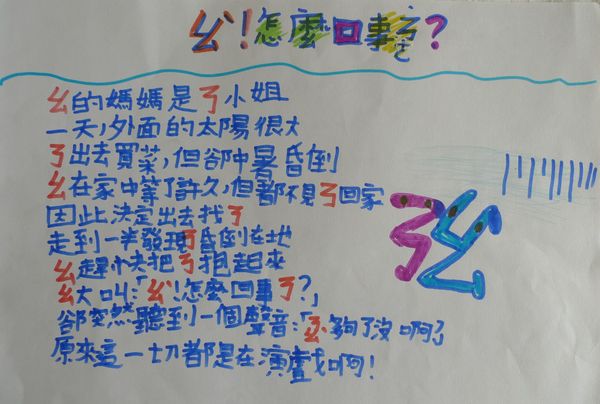 ㄠˋ!怎麼回事?
ㄠ的媽媽是ㄋ小姐
一天,外面的太陽很大
ㄋ出去買菜,但卻中暑昏倒
ㄠ在家中等了許久,但都不見ㄋ回家
因此決定出去找ㄋ
走到一半發現ㄋ昏倒在地
ㄠ趕快把ㄋ抱起來
ㄠ大叫:「ㄠˋ!怎麼回事ㄋ?」
卻突然聽到一個聲音:「夠了沒啊」
原來這一切都是在演戲啊!